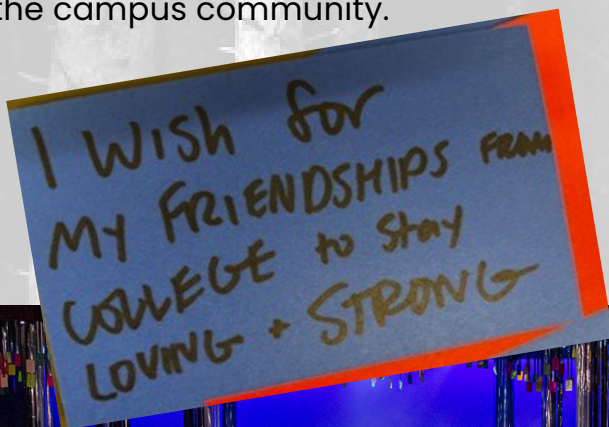 the campus community.
I WISH for
MY FRIENDSHIPS FROM
COLLEGE to Stay
LOVING + STRONG